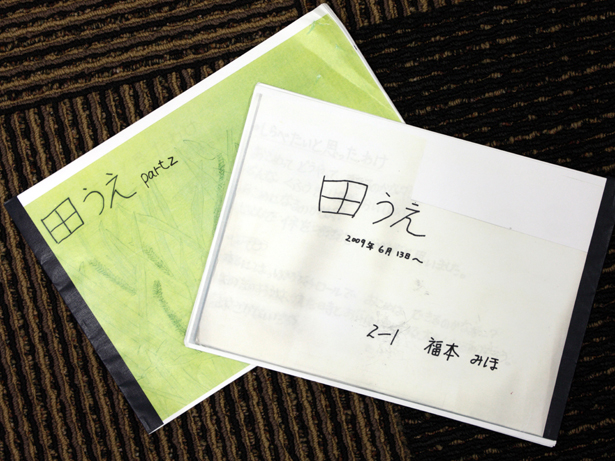 田うえ part2
田うえ
2009年 6月 13日〜
2-1 福本 みほ